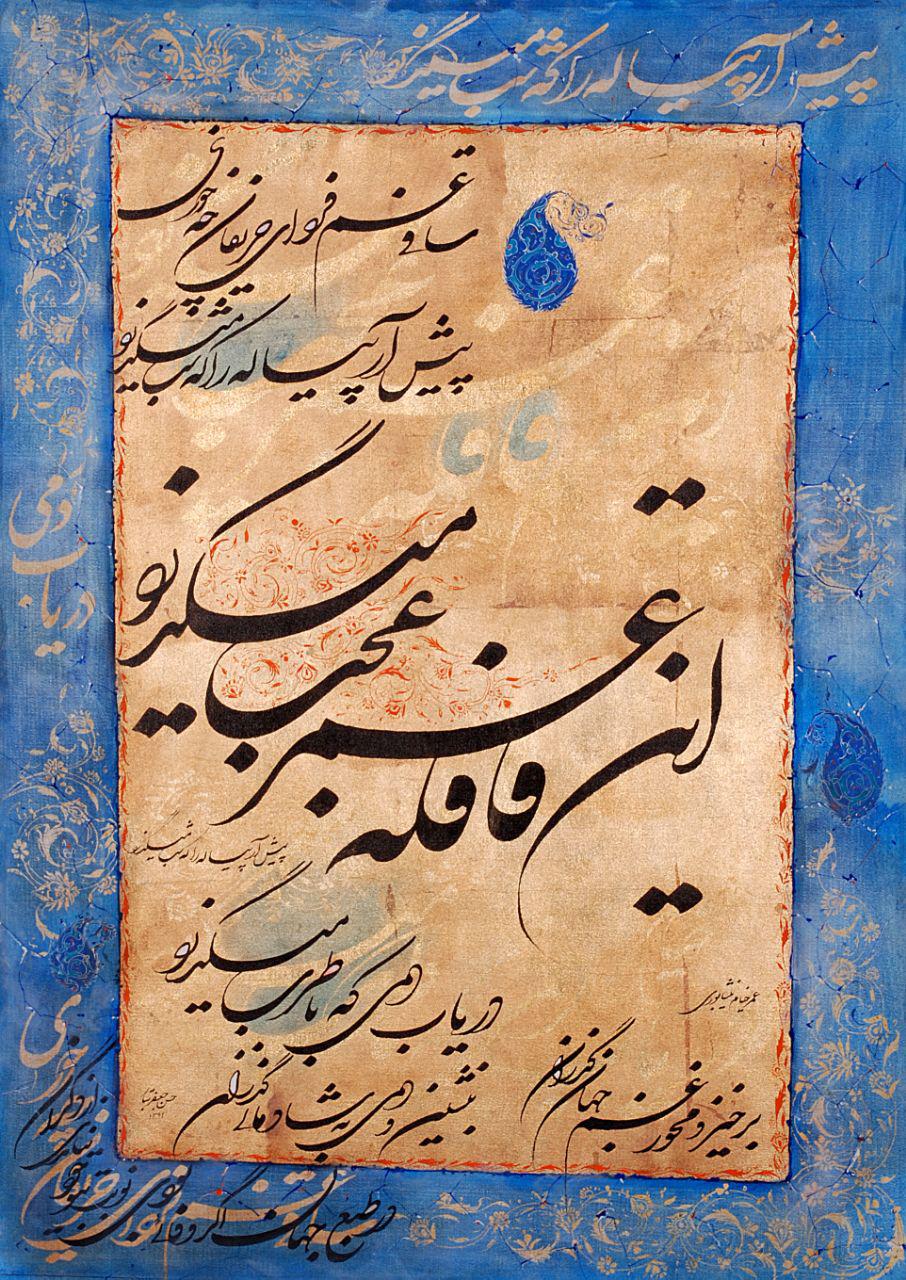 پیش آر پیاله را که شب میگذرد
ساقی غم فردای حریفان چه خوری
پیش آر پیاله را که شب میگذرد
این قافله عمر عجب میگذرد
پیش آر پیاله را که شب میگذرد
دریاب دمی که با طرب میگذرد
عمر خیام نیشابوری
برخیز و مخور غم جهان گذران
بنشین و دمی به شادمانی گذران
۱۳۹۱
در طبع جهان اگر وفائی بودی
نوبت بتو خود نیامدی از دگران
دریاب دمی